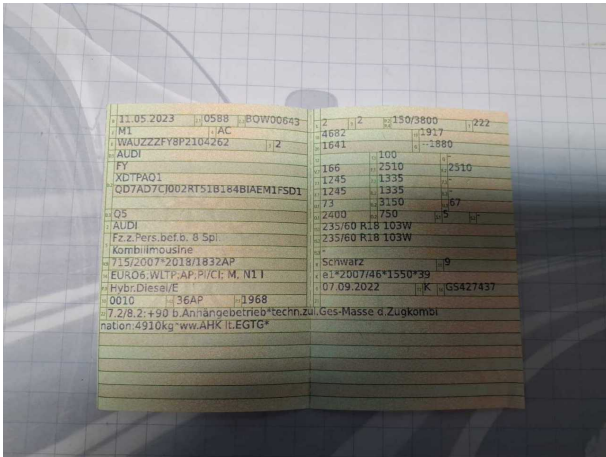 11.05.2023 0588 BQW00643
M1 AC
WAUZZZFY8P2104262 2
AUDI
FY
XDTPAQ1
QD7AD7CJ002RT51B184BIAEM1FSD1
Q5
AUDI
Fz.z.Pers.bef.b. 8 Spl.
Kombilimousine
715/2007*2018/1832AP
EURO6;WLTP;AP;PI/CI; M, N1 I
Hybr.Diesel/E
0010 36AP 1968
7.2/8.2:+90 b.Anhängebetrieb*techn.zul.Ges-Masse d.Zugkombi
nation:4910kg*ww.AHK lt.EGTG*
2 2 150/3800 222
4682 1917
1641 --1880
100 -
166 2510 2510
1245 1335 -
1245 1335 -
73 3150 67
2400 750 5 -
235/60 R18 103W
235/60 R18 103W
Schwarz 9
e1*2007/46*1550*39
07.09.2022 K GS427437